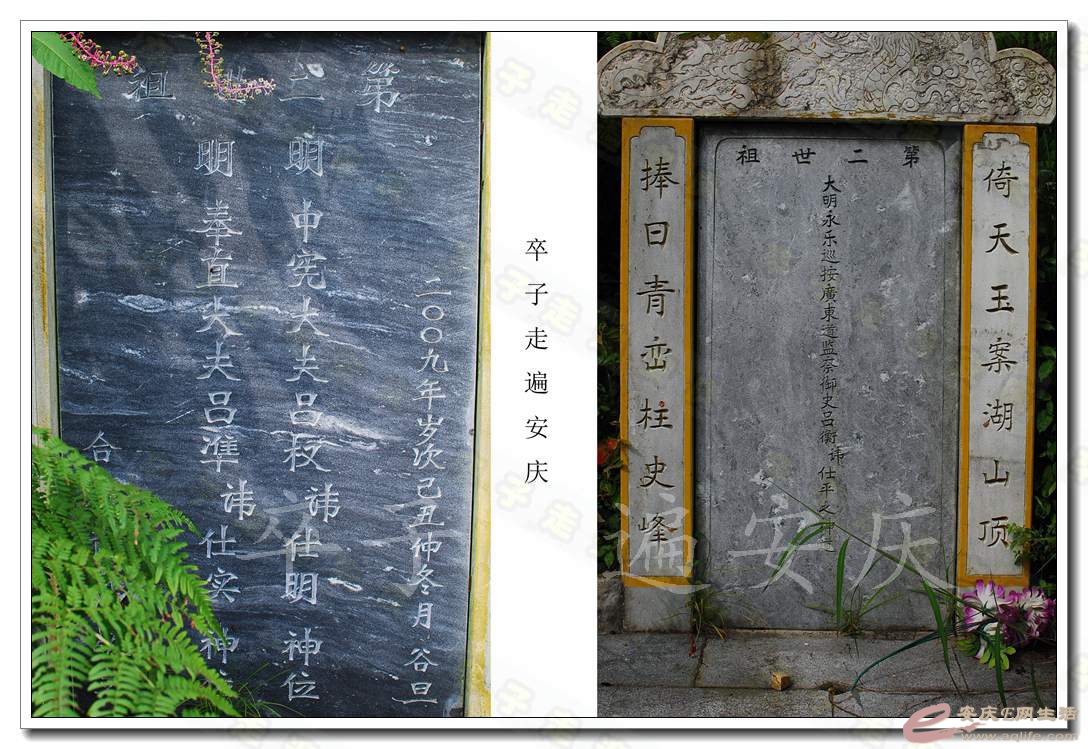 第二世祖
二〇〇九年岁次己丑仲冬月谷旦
明中宪大夫吕权讳仕明神位
明奉直大夫吕準讳仕实神
合
卒子走遍安庆
第二世祖
倚天玉案湖山顶
大明永乐巡按廣東道监察御史吕衡讳仕平之神
捧日青峦柱史峰
卒子走遍安庆
安庆E网生活
www.aqlife.com